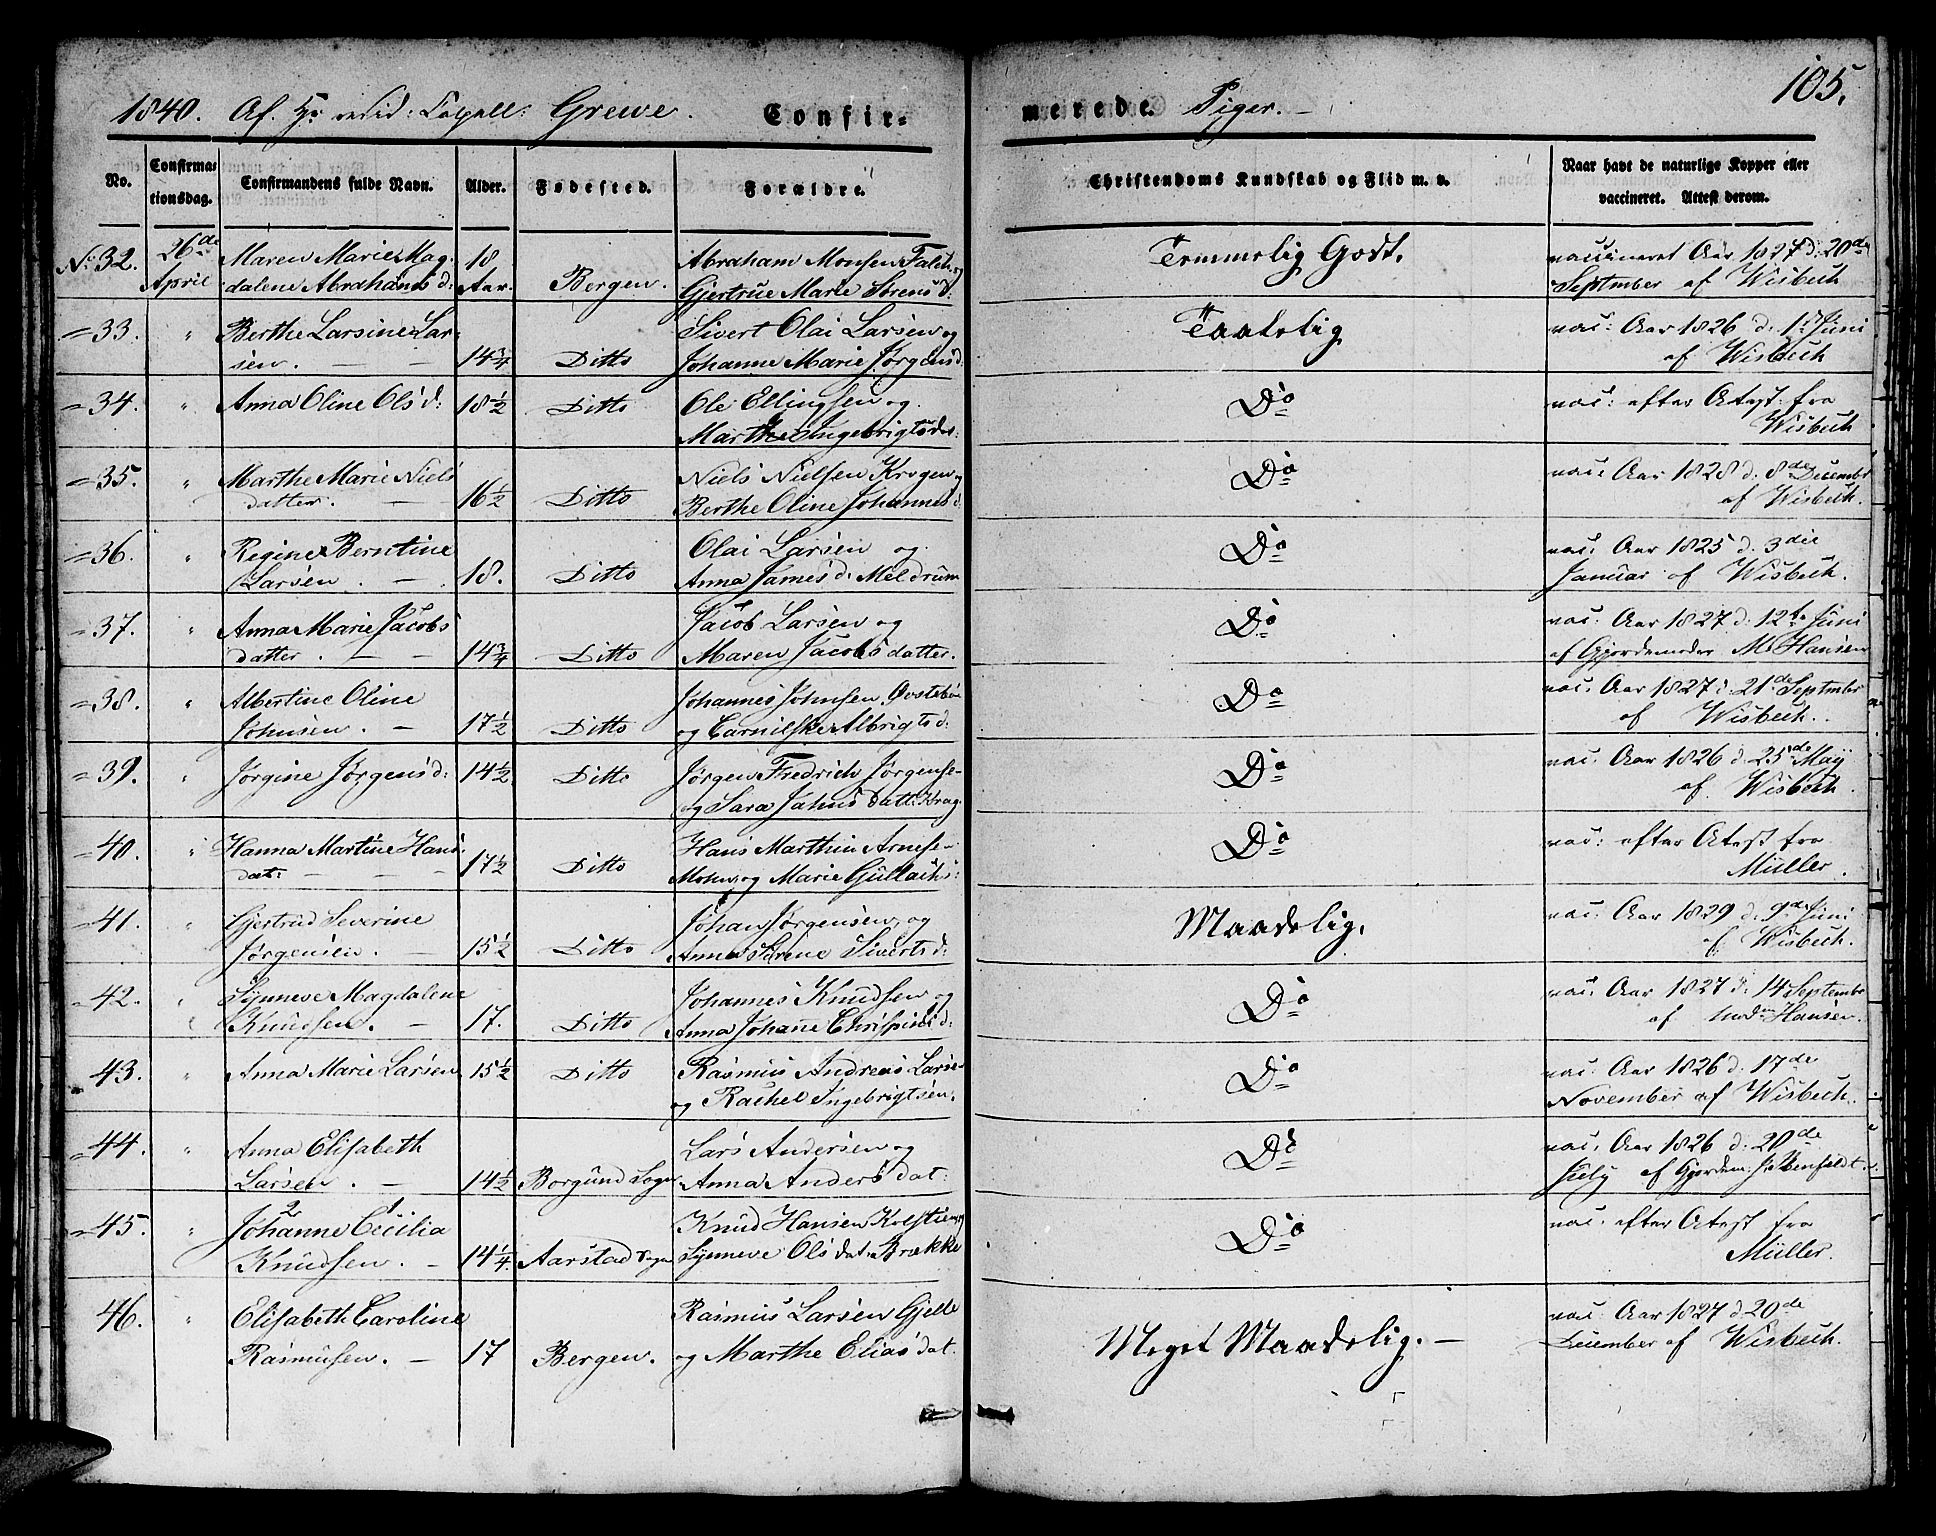 105.
1840. Af Hr resid: Capell: Grewe. Confir-
merede Piger. —
No.
Confirma-
tionsdag.
Confirmandens fulde Navn.
Alder.
Fødested.
Forældre.
Christendoms Kundskab og Flid m. v.
Naar havt de naturlige Kopper eller
vaccineret. Attest derom.
No 32. 26de Maren Marie Mag- 18 Abraham Monsen Falch og Temmelig Godt. vaccineret Aar 1827 d: 20de
April dalene Abrahams d: Aar. Bergen. Gjertrue Marie Sørens d: September af Wisbech
= 33. " Berthe Larsine Lar- Sivert Olai Larsen og Taalelig vac: Aar 1826 d. 1ste Juni
sen. — — 14 3/4 Ditto Johanne Marie Jørgens d: af Wisbech
= 34. " Anna Oline Ols d: 18 1/2 Ditto Ole Ellingsen og Do vac: efter Atest: fra
Marthe Ingebrigts dr: Wisbech
= 35. " Marthe Marie Niels Niels Nielsen Krogen og Do vac: Aar 1828 d: 8de December
datter. — 16 1/2 Ditto Berthe Oline Johannes d: af Wisbech.
= 36. " Regine Berntine Olai Larsen og Do vac: Aar 1825 d. 3die
Larsen. — 18. Ditto Anna James d: Meldrum Januar af Wisbech.
= 37. " Anna Marie Jacobs Jacob Larsen og Do vac: Aar 1827 d: 12te Juni
datter. — — 14 3/4 Ditto Maren Jacobs datter. af Gjordemoder M: Hansen
= 38. " Albertine Oline Johannes Johnsen Øvstebøe Do vac: Aar 1827 d. 21de September
Johnsen. — 17 1/2 Ditto og Carnilske Albrigts d: af Wisbech.
= 39. " Jørgine Jørgens d: 14 1/2 Ditto Jørgen Fredrich Jørgense- Do vac: Aar 1826 d. 25de May
og Sara Jahns datt: Krag. af Wisbech.
= 40. " Hanna Martine Hans Hans Marthin Arnese- Do vac: efter Atest fra
dat: — — — 17 1/2 Ditto Mohn og Marie Gullachs: Müller.
= 41. " Gjertrud Severine Johan Jørgensen og Maadelig. vac: Aar 1829 d. 9de Juni
Jørgensen. — 15 1/2 Ditto Anna Sørine Siverts d: af Wisbech.
= 42. " Synneve Magdalene Johannes Knudsen og Do vac: Aar 1827 d: 14 Septembr
" Knudsen. — 17. Ditto Anna Johanne Chrispins d: af Madm Hansen.
= 43. " Anna Marie Larsen 15 1/2 Ditto Rasmus Andreas Larse- Do vac: Aar 1826 d: 17de
og Rachel Ingebrigtsen. November af Wisbech.
= 44. " Anna Elisabeth Lars Andersen og Do vac: Aar 1826 d: 20de
Larsen. — 14 1/2 Borgund Sogn Anna Anders dat: July af Gjordem:
= 45. " Johanne Cecilia Knud Hansen Kolstien og Do vac: efter Atest fra
Knudsen. — 14 1/4 Aarstad Sogn Synneve Ols dat: Brække Müller.
46. " Elisabeth Caroline Rasmus Larsen Gjelle Meget Maadelig. — vac: Aar 1827 d 20de
Rasmusen. — 17 Bergen. og Marthe Elias dat: December af Wisbech.